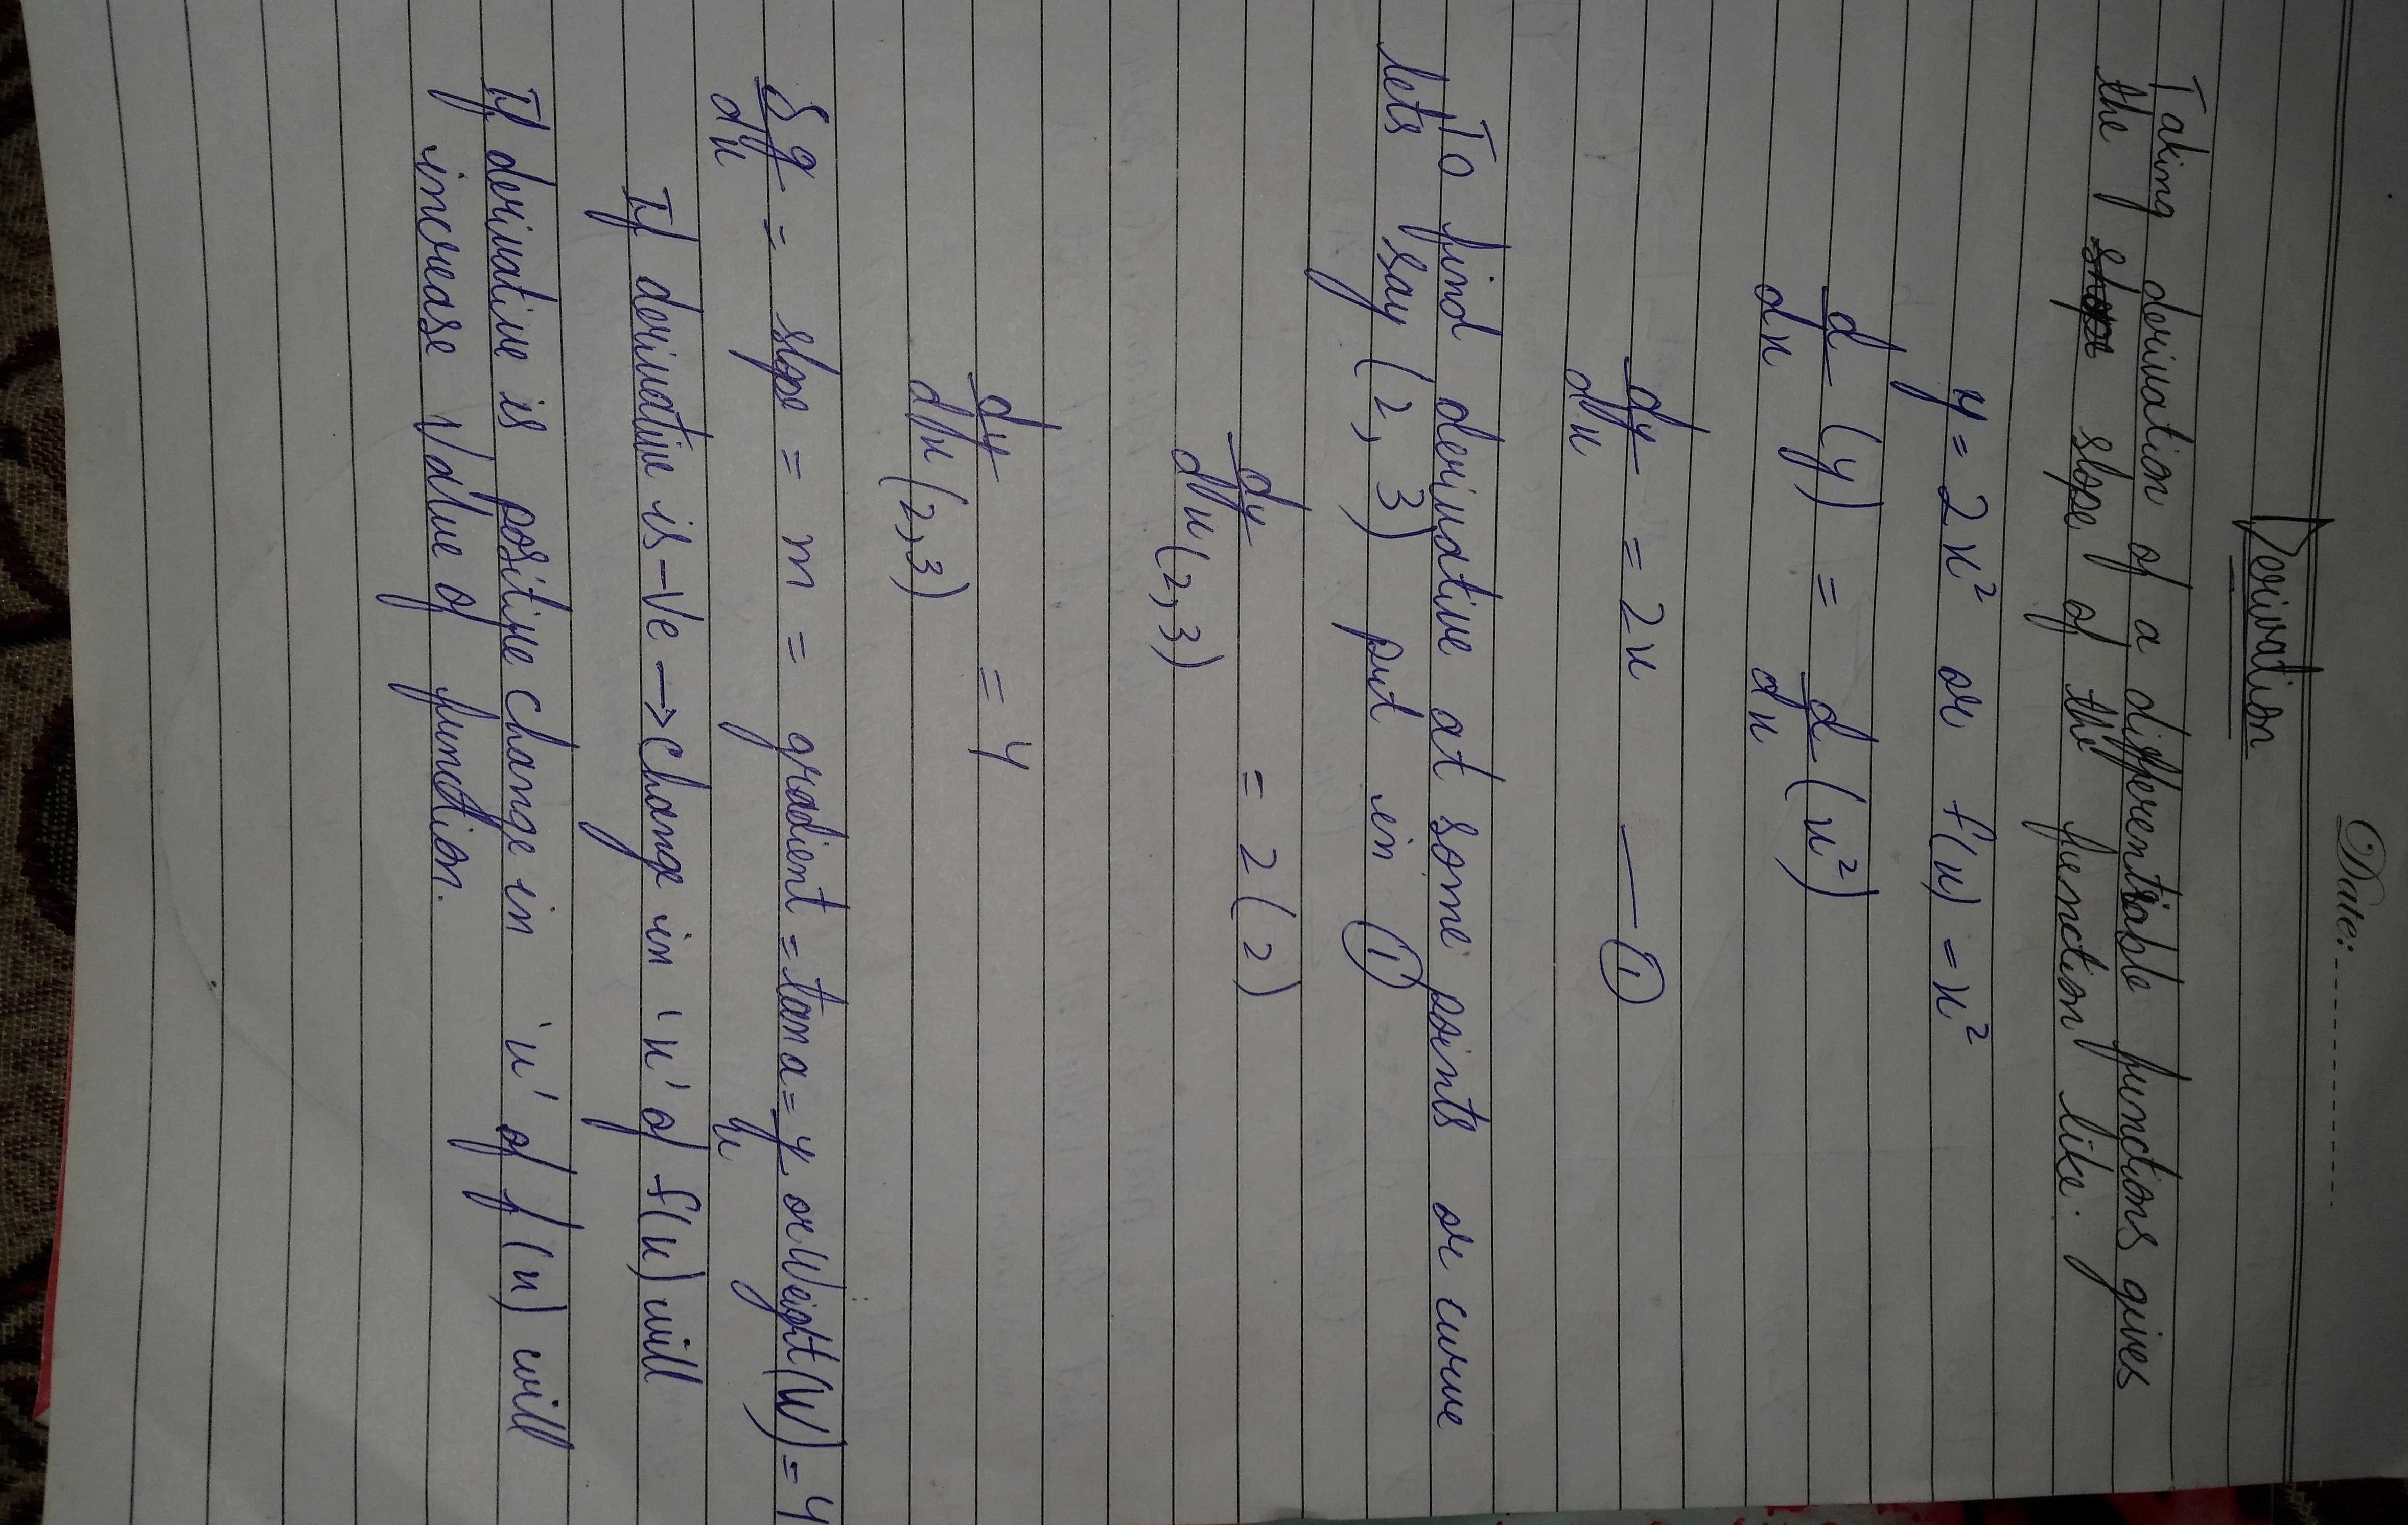 Date:
Derivation
Taking derivation of a differentiable functions gives
the slope of the function like:
y = 2x² or f(x) = x²
d/dx (y) = d/dx (x²)
dy/dx = 2x — ①
To find derivative at some points or curve
lets say (2, 3) put in ①
dy/dx (2,3) = 2(2)
dy/dx (2,3) = 4
dy/dx = slope = m = gradient = tan a = y/x or Weight(W) = 4
If derivative is -Ve → Change in 'x' of f(x) will
If derivative is positive change in 'x' of f(x) will
increase Value of function.